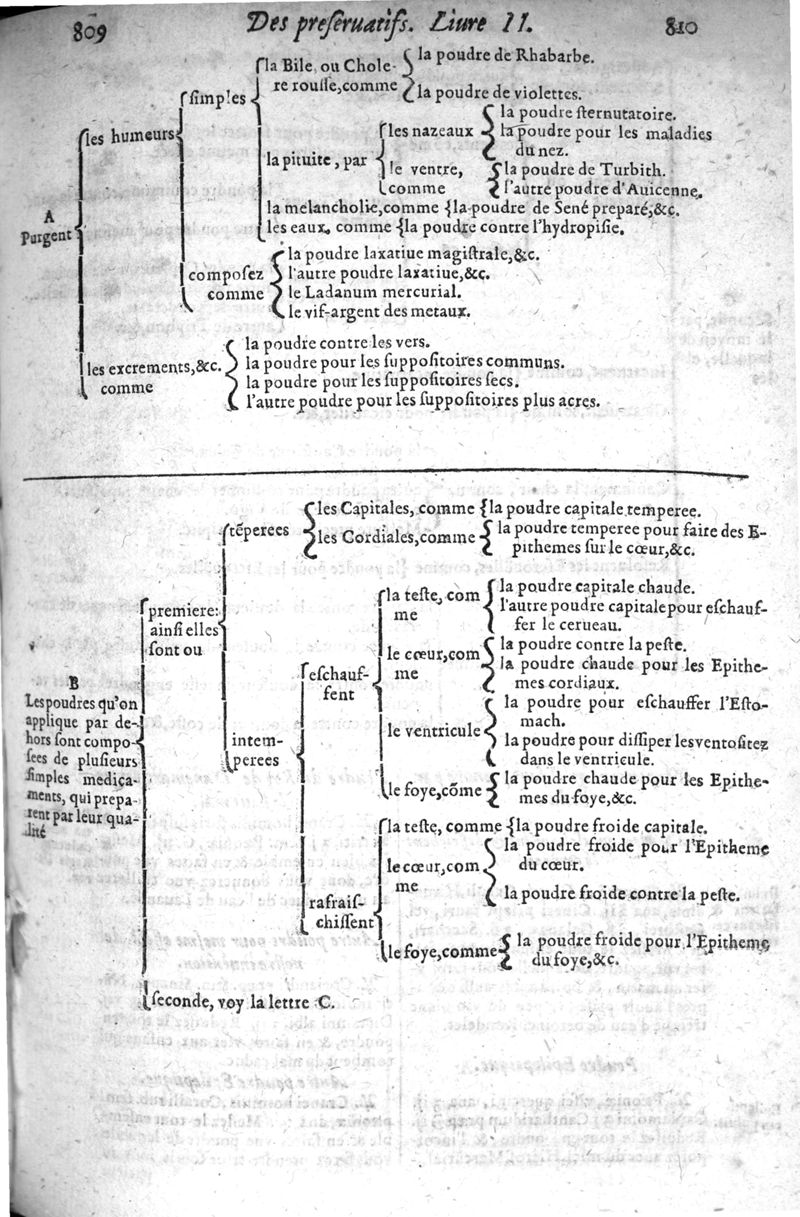 809 Des preſeruatifs. Liure II. 810
la Bile, ou Chole-
re rouſſe, comme
la poudre de Rhabarbe.
la poudre de violettes.
ſimples
les humeurs
la pituite, par
les nazeaux
la poudre ſternutatoire.
la poudre pour les maladies
du nez.
le ventre,
comme
la poudre de Turbith.
l'autre poudre d'Auicenne.
A
Purgent
la melancholie, comme {la poudre de Sené preparé, &c.
les eaux, comme {la poudre contre l'hydropiſie.
compoſez
comme
la poudre laxatiue magiſtrale, &c.
l'autre poudre laxatiue, &c.
le Ladanum mercurial.
le vif-argent des metaux.
les excrements, &c.
comme
la poudre contre les vers.
la poudre pour les ſuppoſitoires communs.
la poudre pour les ſuppoſitoires ſecs.
l'autre poudre pour les ſuppoſitoires plus acres.
tẽperees
les Capitales, comme {la poudre capitale temperee.
les Cordiales, comme
la poudre temperee pour faire des E-
pithemes ſur le cœur, &c.
premiere:
ainſi elles
ſont ou
eſchauf-
fent
la teſte, com
me
la poudre capitale chaude.
l'autre poudre capitale pour eſchauf-
fer le cerueau.
le cœur, com
me
la poudre contre la peſte.
la poudre chaude pour les Epithe-
mes cordiaux.
B
Les poudres qu'on
applique par de-
hors ſont compo-
ſees de pluſieurs
ſimples medica-
ments, qui prepa-
rent par leur qua-
lité
intem-
perees
le ventricule
la poudre pour eſchauffer l'Eſto-
mach.
la poudre pour diſſiper les ventoſitez
dans le ventricule.
le foye, cõme
la poudre chaude pour les Epithe-
mes du foye, &c.
rafraiſ-
chiſſent
la teſte, comme {la poudre froide capitale.
le cœur, com
me
la poudre froide pour l'Epitheme
du cœur.
la poudre froide contre la peſte.
le foye, comme
la poudre froide pour l'Epitheme
du foye, &c.
ſeconde, voy la lettre C.